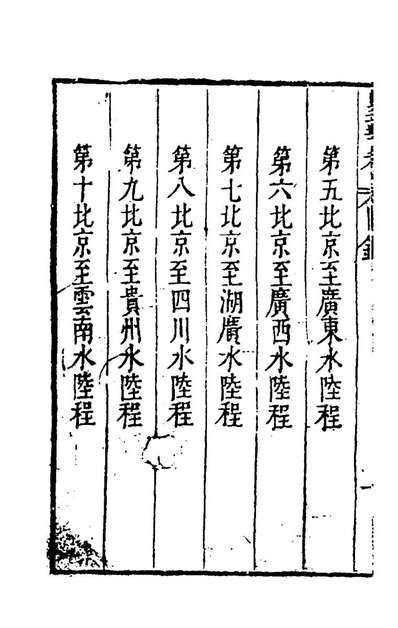 第五北京至廣東水陸程
第六北京至廣西水陸程
第七北京至湖廣水陸程
第八北京至四川水陸程
第九北京至貴州水陸程
第十北京至雲南水陸程